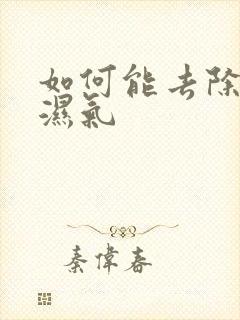 如何能去除
濕氣
秦偉春